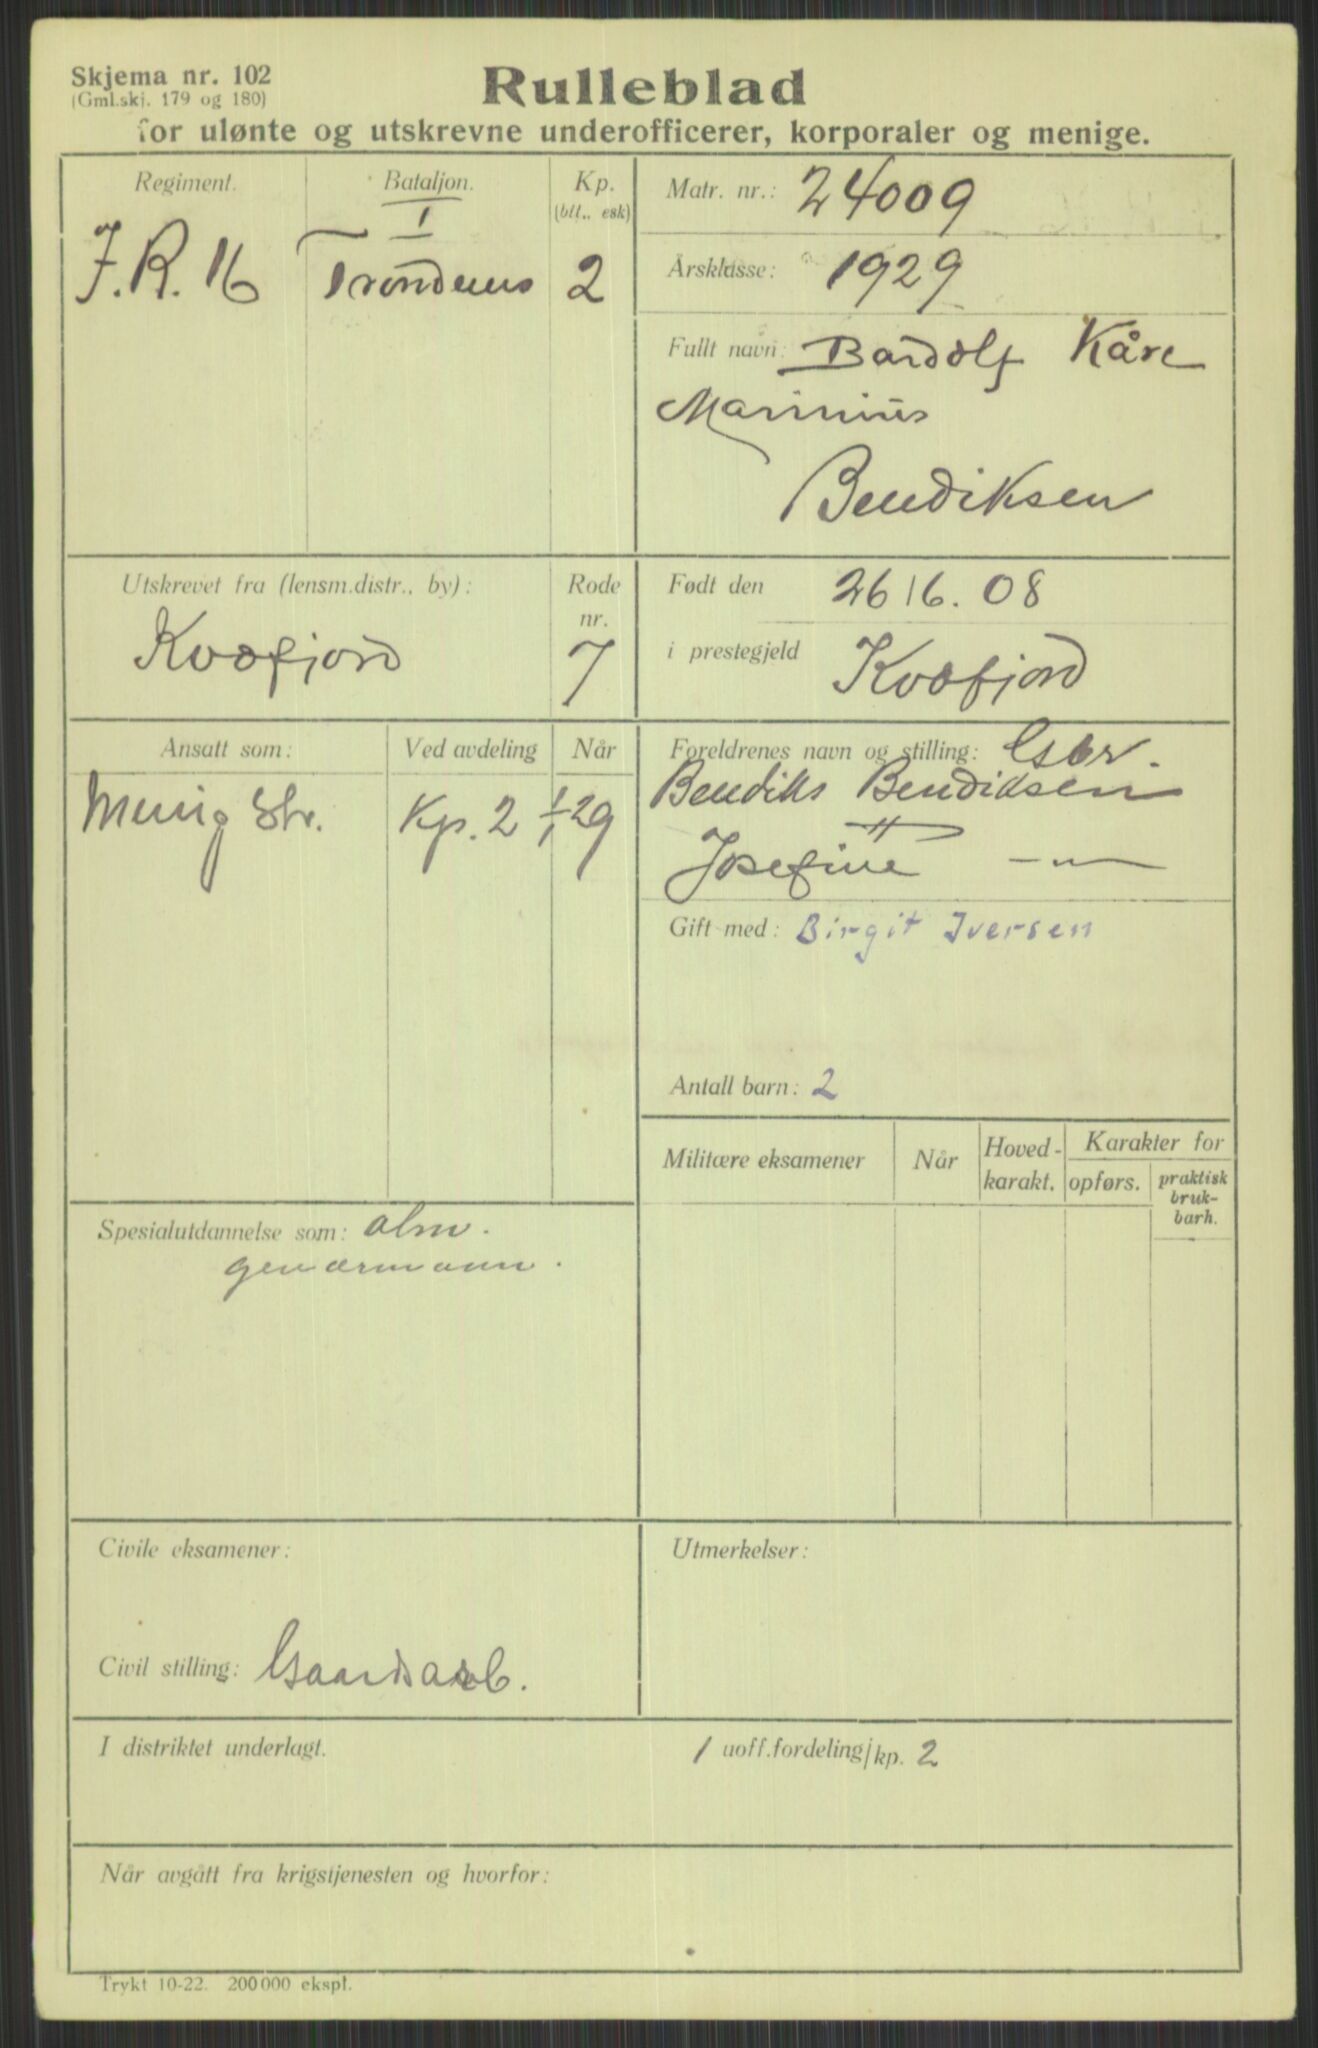 Skjema nr. 102
(Gml.skj. 179 og 180)
Rulleblad
for ulønte og utskrevne underofficerer, korporaler og menige.
Regiment.
Bataljon.
Kp.
(btt., esk)
I
J.R. 16
Trondenes
2
Matr. nr.: 24009
Årsklasse: 1929
Fullt navn: Bardolf Kåre
Marinius
Bendiksen
Utskrevet fra (lensm.distr., by):
Rode
nr.
Kvæfjord
7
Født den 26/6. 08
i prestegjeld Kvæfjord
Ansatt som:
Ved avdeling
Når
Menig Str.
Kp. 2
1/1 29
Foreldrenes navn og stilling: Gbr.
Bendiks Bendiksen
Josefine — " —
Gift med: Birgit Iversen
Antall barn: 2
Militære eksamener
Når
Hoved-
karakt.
Karakter for
opførs.
praktisk
bruk-
barh.
Spesialutdannelse som: alm.
geværmann.
Civile eksamener:
Utmerkelser:
Civil stilling: Gaardsarb.
I distriktet underlagt.
1 uoff.fordeling/kp. 2
Når avgått fra krigstjenesten og hvorfor:
Trykt 10-22. 200 000 ekspl.